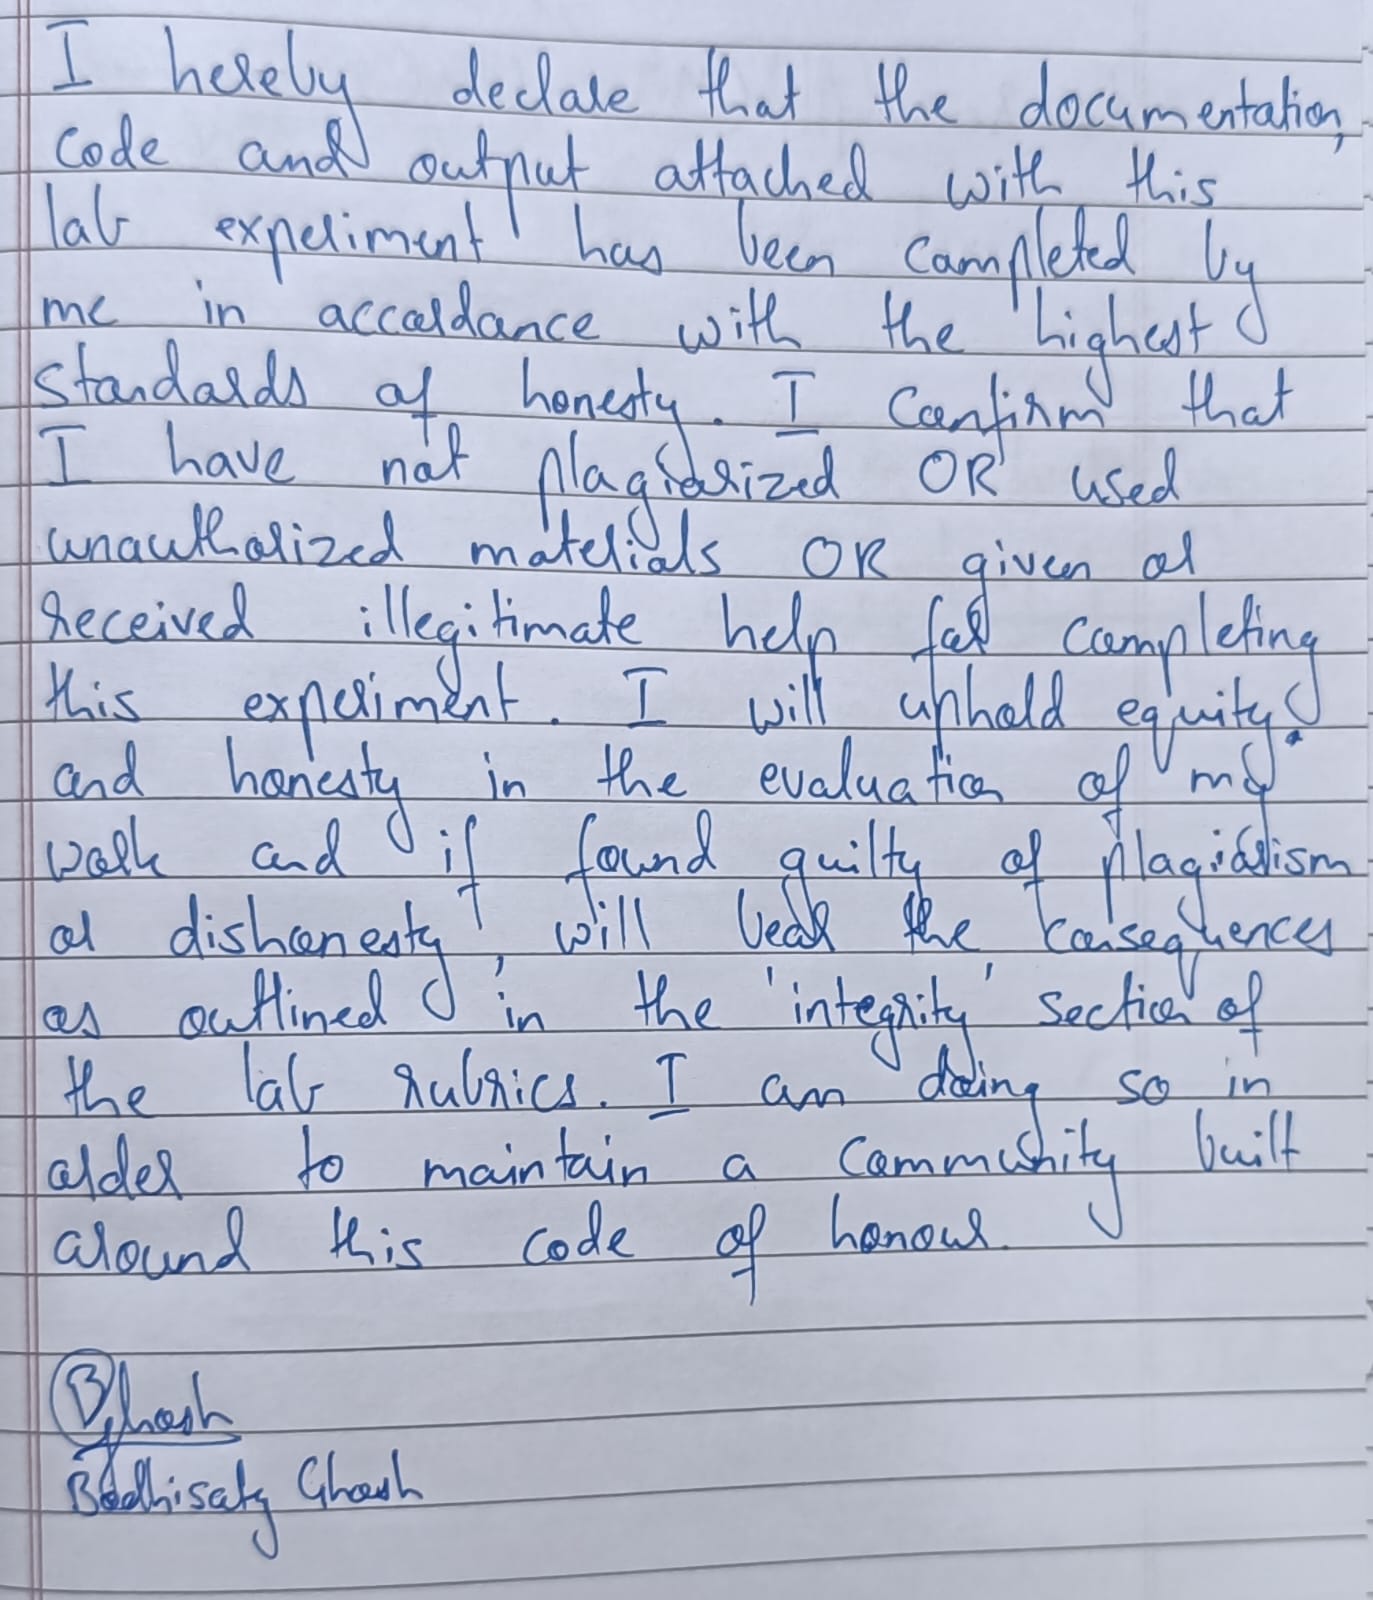 I hereby declare that the documentation,
code and output attached with this
lab experiment has been completed by
me in accordance with the highest
standards of honesty. I confirm that
I have not plagiarized OR used
unauthorized materials OR given or
received illegitimate help for completing
this experiment. I will uphold equity
and honesty in the evaluation of my
work and if found guilty of plagiarism
or dishonesty, will bear the consequences
as outlined in the 'integrity' section of
the lab rubrics. I am doing so in
order to maintain a community built
around this code of honour.
BGhosh
Bodhisaty Ghosh